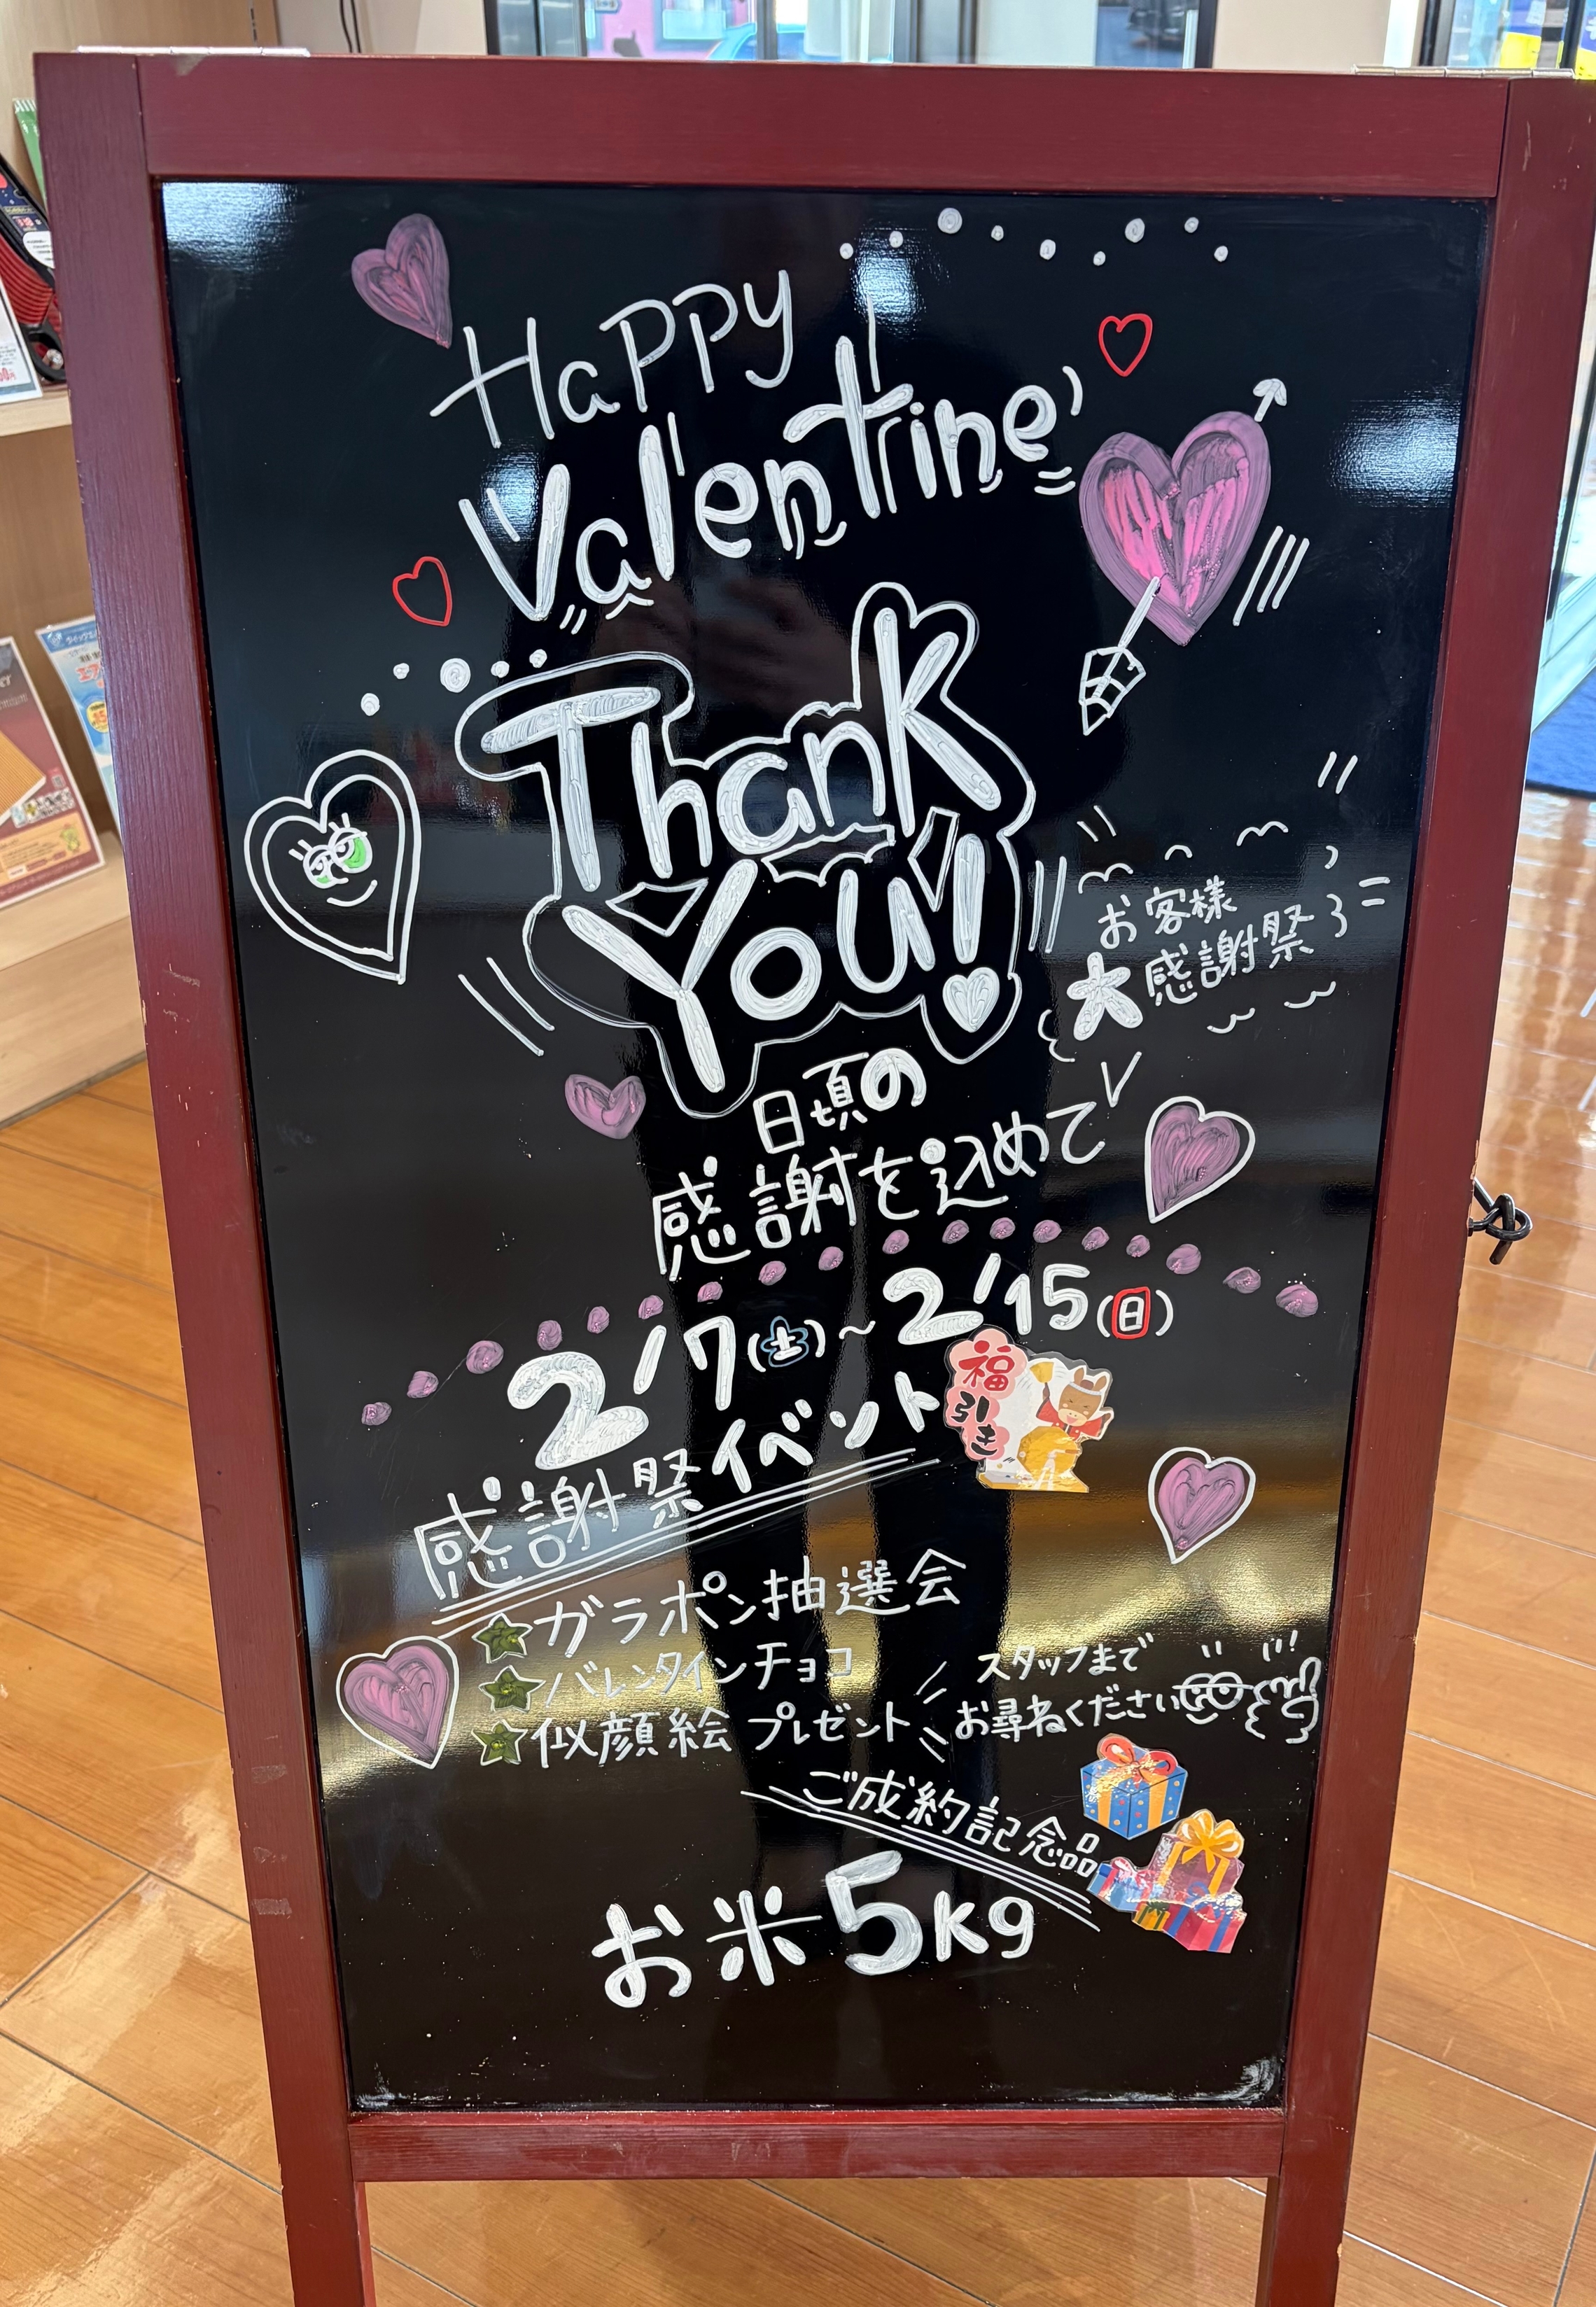 Happy
Valentine
Thank
You!
お客様
大感謝祭
日頃の
感謝を込めて
2/7(土)~2/15(日)
福引き
感謝祭イベント
ガラポン抽選会
バレンタインチョコ
似顔絵プレゼント
スタッフまで
お尋ねください
ご成約記念品
お米5kg